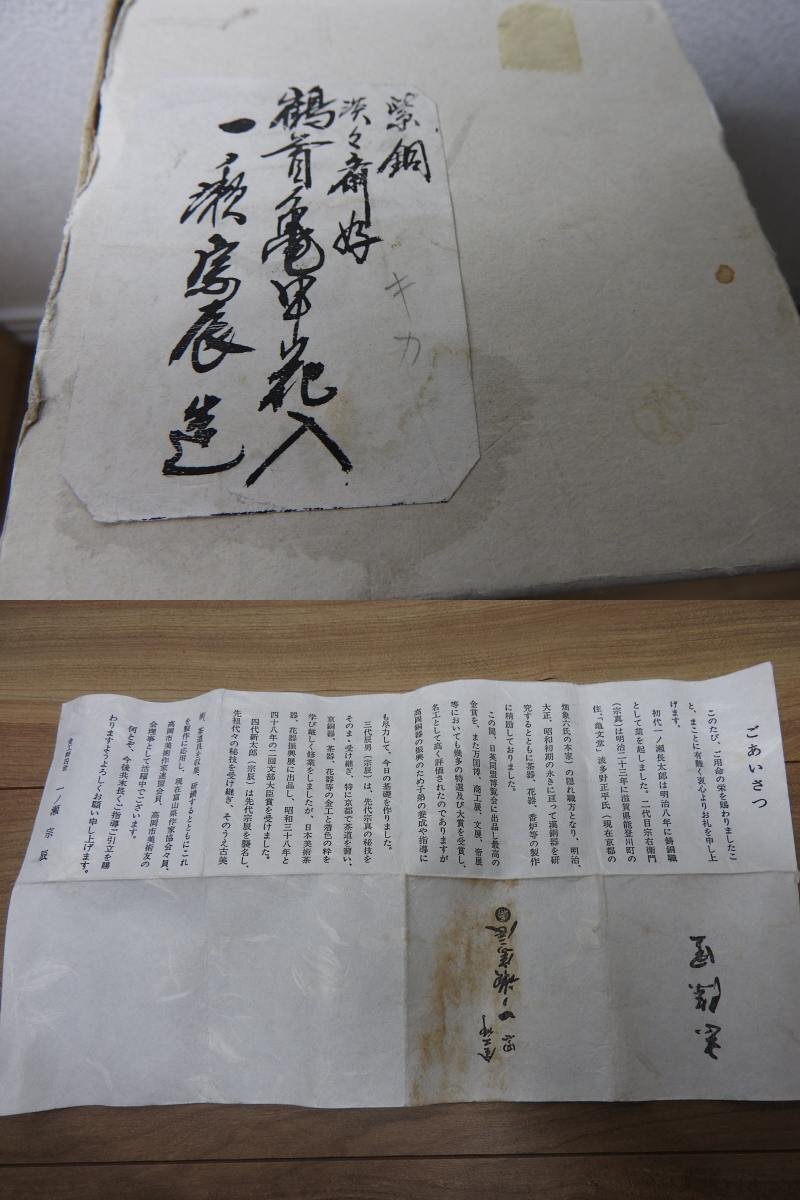 紫銅
淡々斎好
鶴首亀甲花入
一ノ瀬宗辰造
キカ
ごあいさつ
このたび、ご用命の栄を賜わりましたこ
と、まことに有難く衷心よりお礼を申し上
げます。
初代一ノ瀬長太郎は明治八年に鋳銅職
として業を起しました。二代目宗右衛門
(宗真)は明治二十三年に滋賀県能登川町の
住、「亀文堂」波多野正平氏(現在京都の
畑象六氏の本家)の隠れ職方となり、明治、
大正、昭和初期の永きに亘って漢銅器を研
究するとともに茶器、花器、香炉等の製作
に精励しておりました。
この間、日英同盟博覧会に出品し最高の
金賞を、また万国博、商工展、文展、帝展
等においても幾多の特選及び大賞を受賞し、
名工として高く評価されたのでありますが
高岡銅器の振興のため子弟の養成や指導に
も尽力して、今日の基礎を作りました。
三代辰男(宗辰)は、先代宗真の秘技を
そのまゝ受け継ぎ、特に京都で茶道を習い、
京銅器、茶器、花器等の金工と着色の粋を
学び厳しく修業をしましたが、日本美術茶
器、花器振興展に出品し、昭和三十八年と
四十八年の二回文部大臣賞を受けました。
四代新太郎(宗辰)は先代宗辰を襲名し、
先祖代々の秘技を受け継ぎ、そのうえ古美
術、茶道具を収集、研鑽するとともにこれ
を製作に応用し、現在富山県作家連盟会員、
高岡市美術作家協会々員、高岡市美術友の
会理事として活躍中でございます。
何とぞ、今後共末長くご指導ご引立を賜
わりますようよろしくお願い申し上げます。
一ノ瀬宗辰
一ノ瀬宗辰